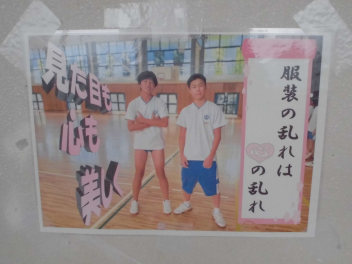 見た目も
心も
美しく
服装の乱れは
の乱れ